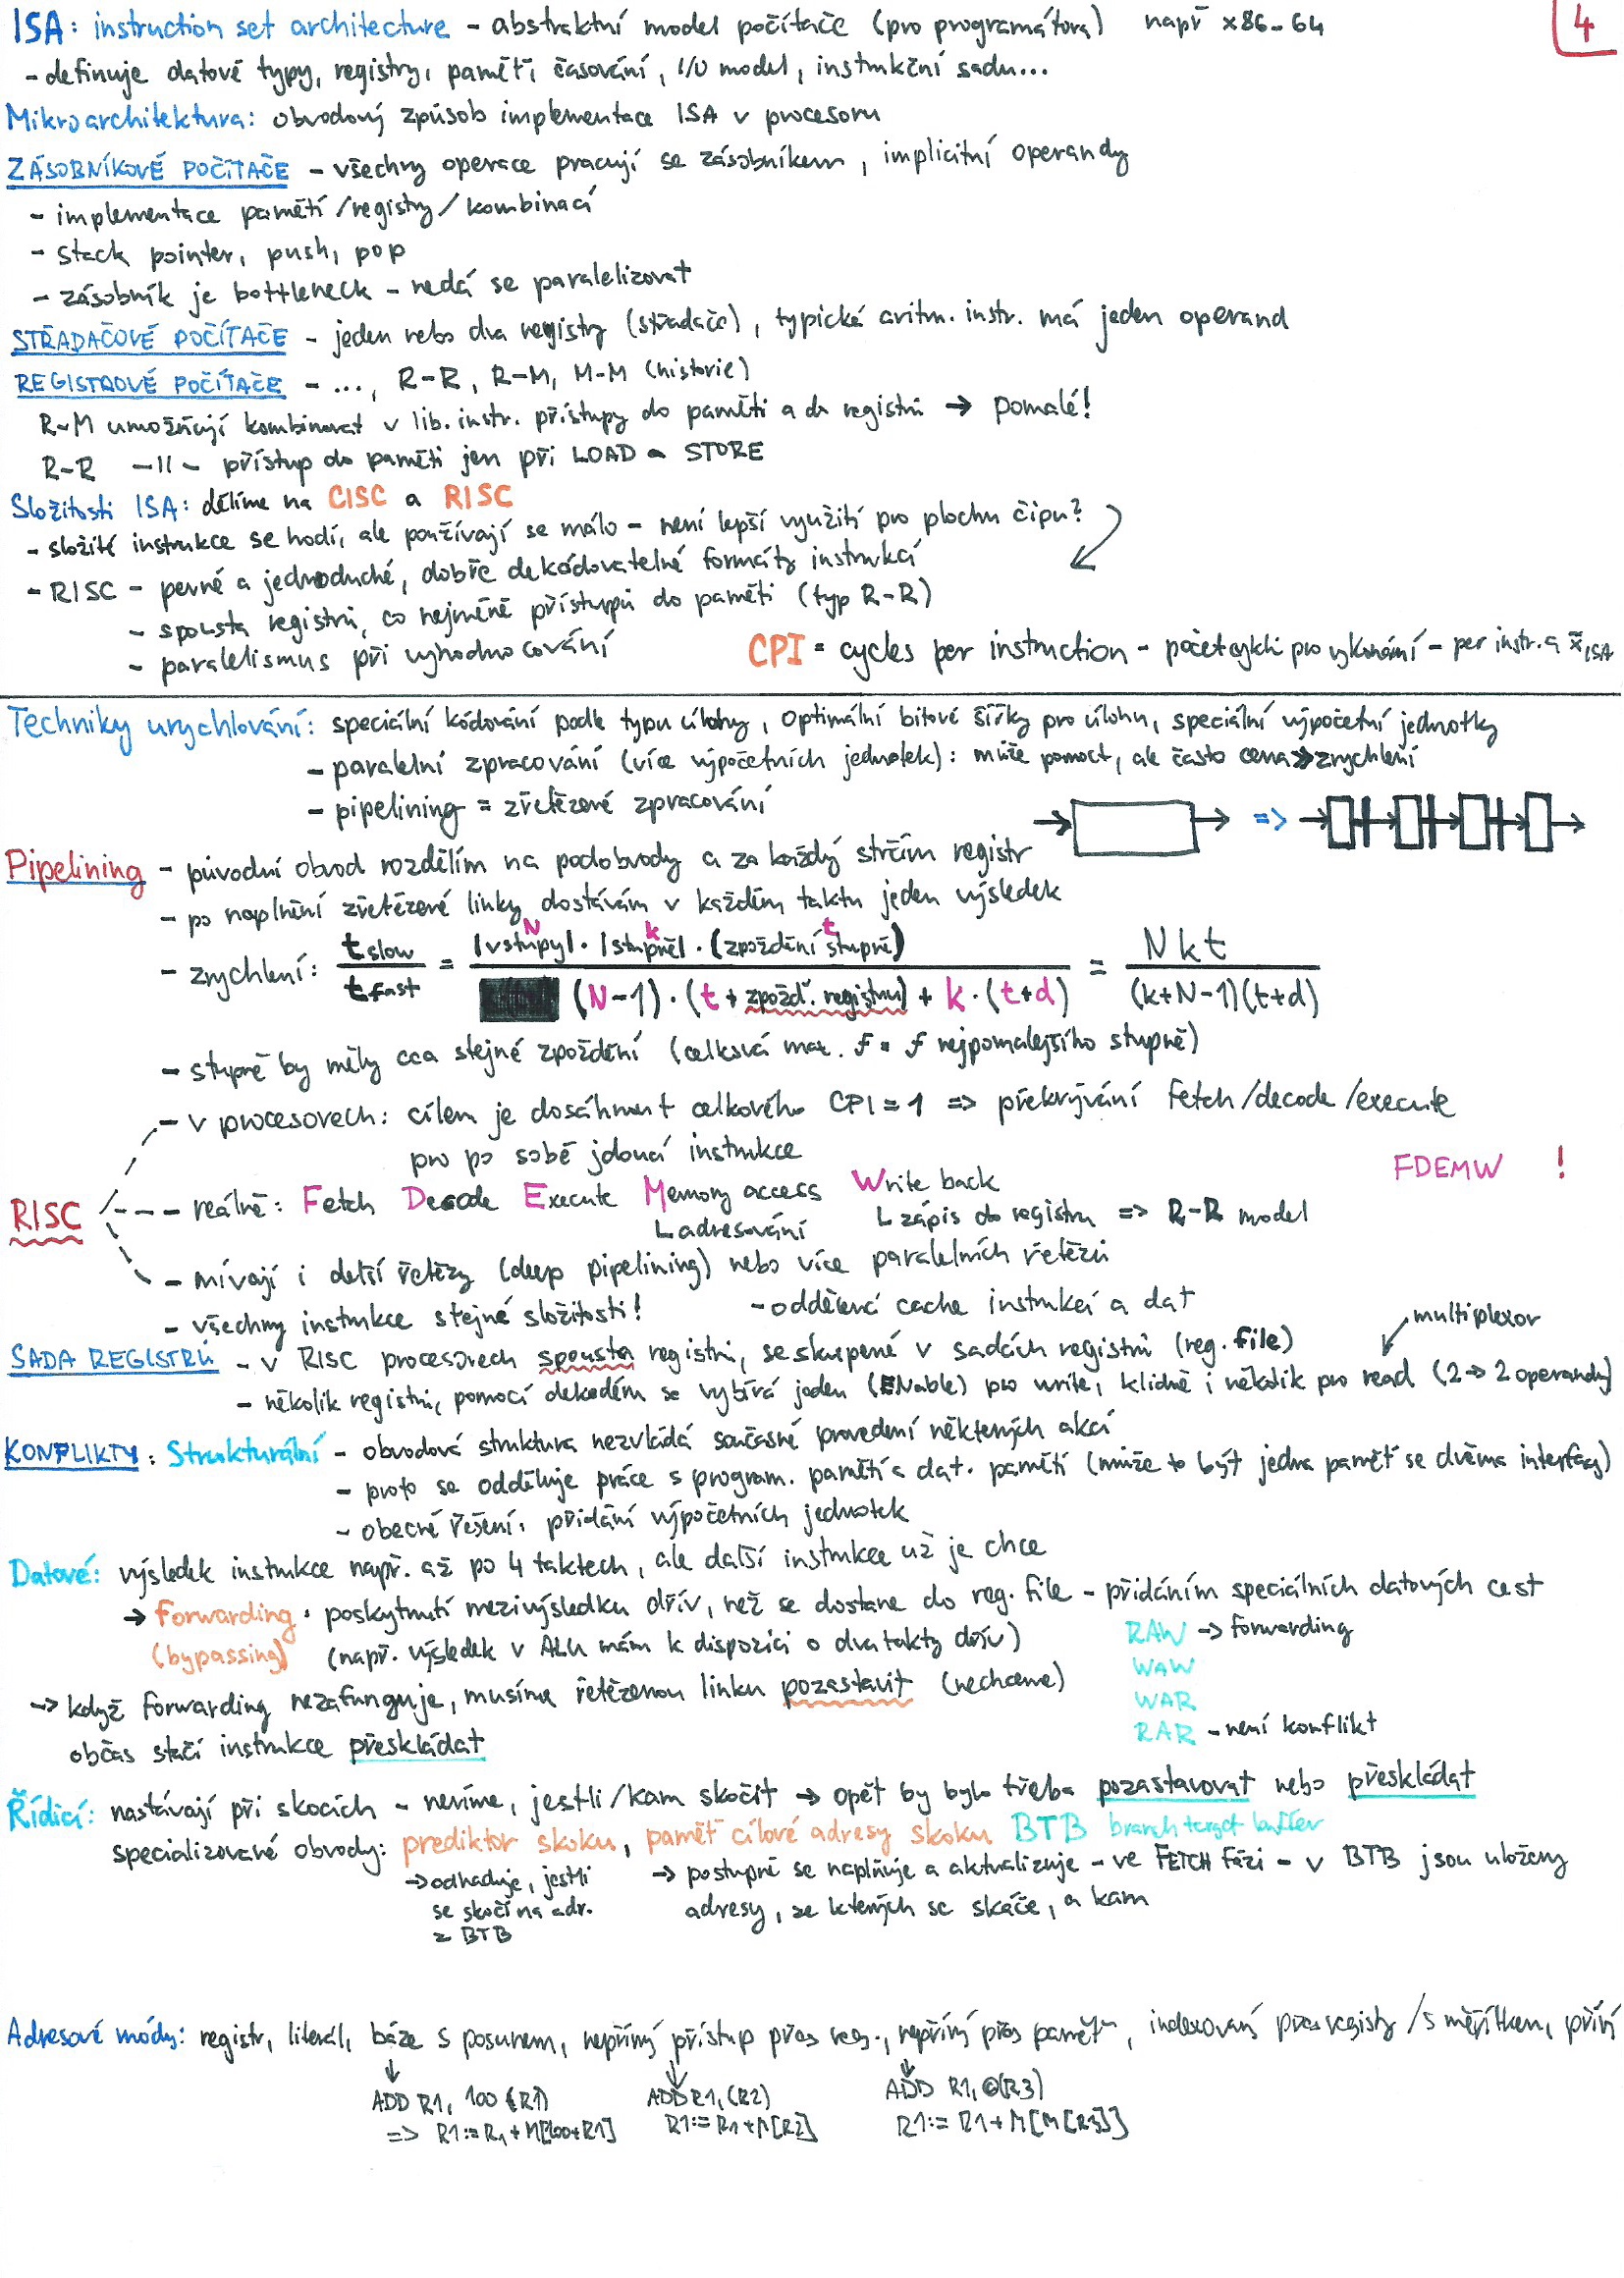 4
ISA: instruction set architecture - abstraktní model počítače (pro programátora) např x86-64
- definuje datové typy, registry, paměti, časování, I/O model, instrukční sadu...
Mikroarchitektura: obvodový způsob implementace ISA v procesoru
ZÁSOBNÍKOVÉ POČÍTAČE - všechny operace pracují se zásobníkem, implicitní operandy
- implementace pamětí/registry/kombinací
- stack pointer, push, pop
- zásobník je bottleneck - nedá se paralelizovat
STŘADAČOVÉ POČÍTAČE - jeden nebo dva registry (střadače), typická aritm. instr. má jeden operand
REGISTROVÉ POČÍTAČE - ..., R-R, R-M, M-M (historie)
R-M umožňují kombinovat v lib. instr. přístupy do paměti a do registrů → pomalé!
R-R -||- přístup do paměti jen při LOAD a STORE
Složitosti ISA: dělíme na CISC a RISC
- složité instrukce se hodí, ale používají se málo - není lepší využití pro plochu čipu?
- RISC - pevné a jednoduché, dobře dekódovatelné formáty instrukcí
- spousta registrů, co nejméně přístupů do paměti (typ R-R)
- paralelismus při vyhodnocování
CPI = cycles per instruction - počet cyklů pro vykonání - per instr. a x̄ ISA
Techniky urychlování: speciální kódování podle typu úlohy, optimální bitové šířky pro úlohu, speciální výpočetní jednotky
- paralelní zpracování (více výpočetních jednotek): může pomoct, ale často cena >> zrychlení
- pipelining = zřetězené zpracování
=>
Pipelining - původní obvod rozdělím na podobvody a za každý strčím registr
- po naplnění zřetězené linky dostávám v každém taktu jeden výsledek
N k t
- zrychlení: t slow / t fast = |vstupy| · |stupně| · (zpoždění stupně) / (N-1) · (t + zpožď. registru) + k · (t+d) = Nkt / (k+N-1)(t+d)
- stupně by měly cca stejné zpoždění (celková max. f = f nejpomalejšího stupně)
- v procesorech: cílem je dosáhnout celkového CPI = 1 => překrývání fetch/decode/execute
pro po sobě jdoucí instrukce
FDEMW !
RISC - reálně: Fetch Decode Execute Memory access Write back
adresování zápis do registru => R-R model
- mívají i delší řetězy (deep pipelining) nebo více paralelních řetězů
- všechny instrukce stejné složitosti! - oddělení cache instrukcí a dat
multiplexor
SADA REGISTRŮ - v RISC procesorech spousta registrů, seskupené v sadách registrů (reg. file)
- několik registrů, pomocí dekodéru se vybírá jeden (ENable) pro write, klidně i několik pro read (2 → 2 operandy)
KONFLIKTY: Strukturální - obvodová struktura nezvládá současné provedení některých akcí
- proto se odděluje práce s program. pamětí a dat. pamětí (může to být jedna paměť se dvěma interfacy)
- obecné řešení: přidání výpočetních jednotek
Datové: výsledek instrukce např. až po 4 taktech, ale další instrukce už je chce
→ Forwarding · poskytnutí mezivýsledku dřív, než se dostane do reg. file - přidáním speciálních datových cest
(bypassing) (např. výsledek v ALU mám k dispozici o dva takty dřív)
RAW → forwarding
WAW
WAR
RAR - není konflikt
→ když forwarding nezafunguje, musíme řetězenou linku pozastavit (nechceme)
občas stačí instrukce přeskládat
Řídicí: nastávají při skocích - nevíme, jestli/kam skočit → opět by bylo třeba pozastavovat nebo přeskládat
specializované obvody: prediktor skoku, paměť cílové adresy skoku BTB branch target buffer
→ odhaduje, jestli se skočí na adr. z BTB
→ postupně se naplňuje a aktualizuje - ve FETCH fázi - v BTB jsou uloženy
adresy, ze kterých se skáče, a kam
Adresové módy: registr, literál, báze s posunem, nepřímý přístup přes reg., nepřímý přes paměť, indexovaný přes registry / s měřítkem, přímý
ADD R1, 100 (R1) ADD R1, (R2) ADD R1, @(R3)
=> R1 := R1 + M[100+R1] R1 := R1 + M[R2] R1 := R1 + M[M[R3]]